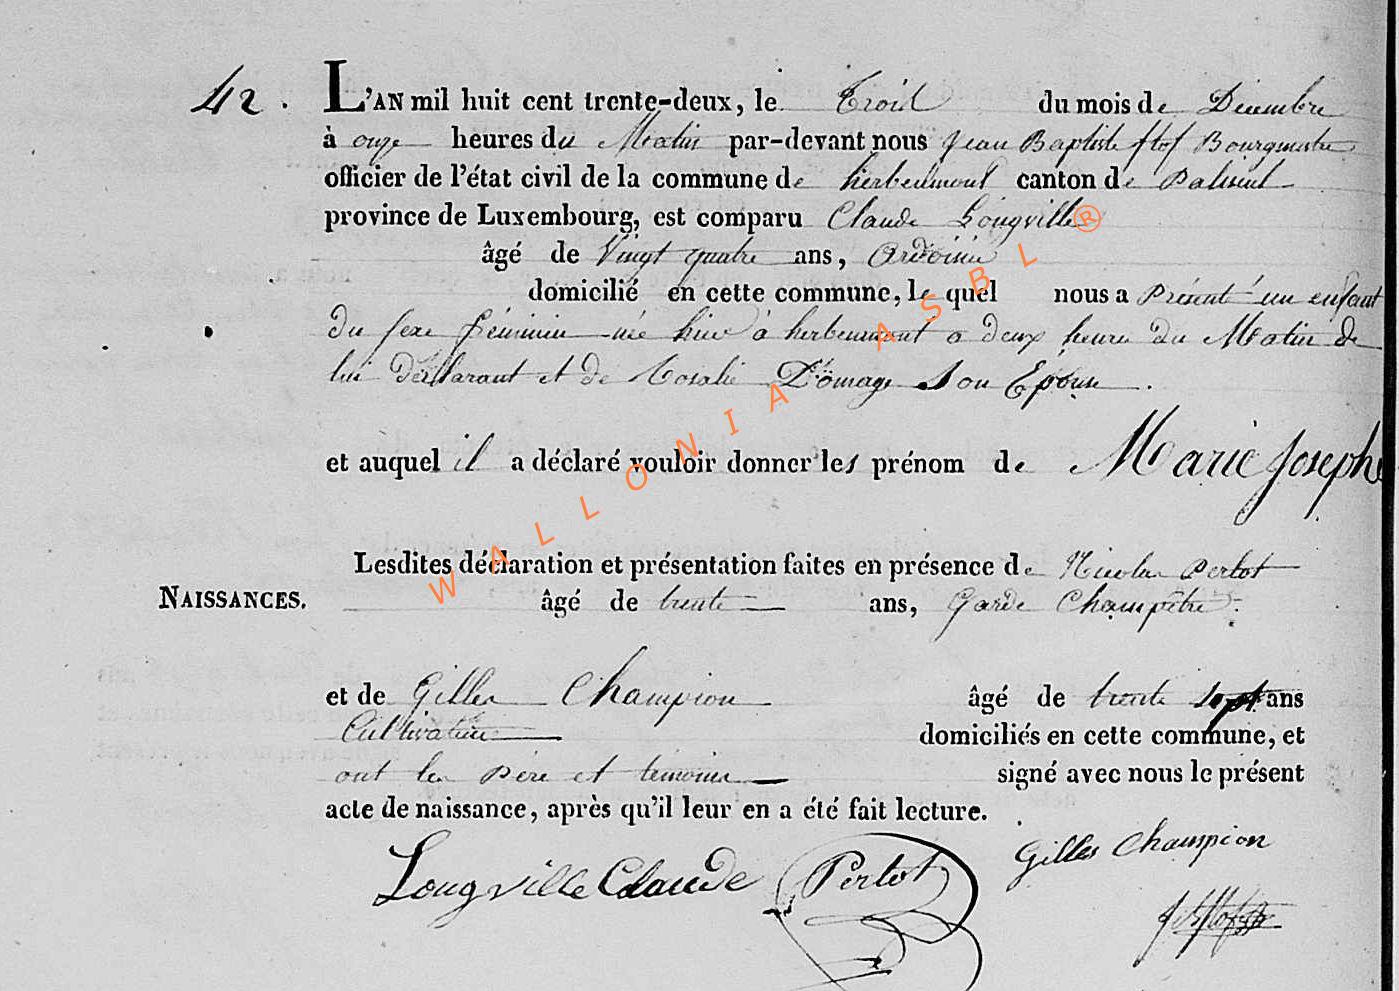 42. L'AN mil huit cent trente-deux, le Trois du mois de Décembre
à onze heures du Matin par-devant nous Jean Baptiste Bourgmestre
officier de l'état civil de la commune de herbeumont canton de Paliseul
province de Luxembourg, est comparu Claude Longville
âgé de Vingt quatre ans, Ardoisier
domicilié en cette commune, le quel nous a Présenté un enfant
du sexe féminin née hier à herbeumont a deux heure du Matin de
lui déclarant et de Rosalie Son Epouse.
et auquel il a déclaré vouloir donner les prénom de Marie Josephe
Lesdites déclaration et présentation faites en présence de Nicolas Pertot
NAISSANCES. âgé de trente ans, Garde Champêtre.
et de Gilles Champion âgé de trente sept ans
Cultivateur domiciliés en cette commune, et
ont les père et témoins signé avec nous le présent
acte de naissance, après qu'il leur en a été fait lecture.
Longville Claude Pertot Gilles Champion
WALLONIA ASBL ®